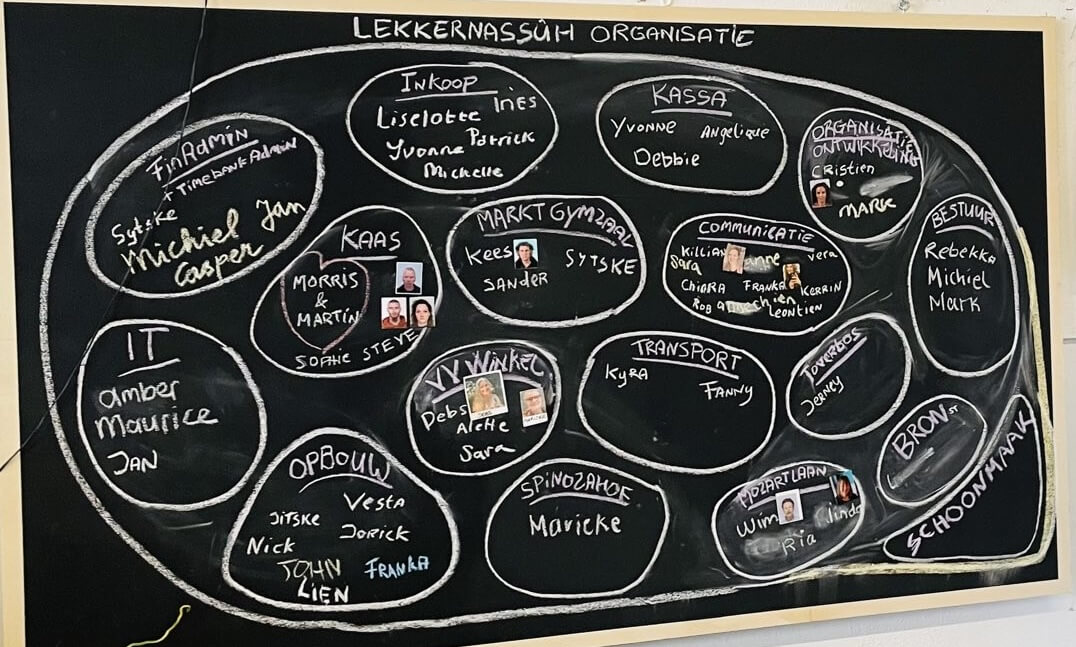 LEKKERNASSÛH ORGANISATIE
INKOOP
Liselotte INES
Yvonne Patrick
Michelle
KASSA
Yvonne Angelique
Debbie
ORGANISATIE
ONTWIKKELING
CRistien
MARK
FinAdmin
+ TimebankAdmin
Sytske
Michiel Jan
Casper
KAAS
MORRIS
&
MARTIN
SOPHIE STEVE
MARKT GYMZAAL
Kees SYTSKE
SANDER
COMMUNICATIE
Killian anne vera
Sara
CHIARA FRANKA KERRIN
ROB annechien
Leontien
BESTUUR
Rebekka
Michiel
Mark
IT
amber
Maurice
JAN
VV WinkEL
Debs
Sara
TRANSPORT
KyRA
FANNY
Toverbos
Jerney
BRON ST
SCHOONMAAK
OPBOUW
Vesta
JITSKE
Jorick
Nick
JOHN FRANKA
LIEN
SPINOZAHOF
Maricke
MOZARTLAAN
Wim linda
Ria